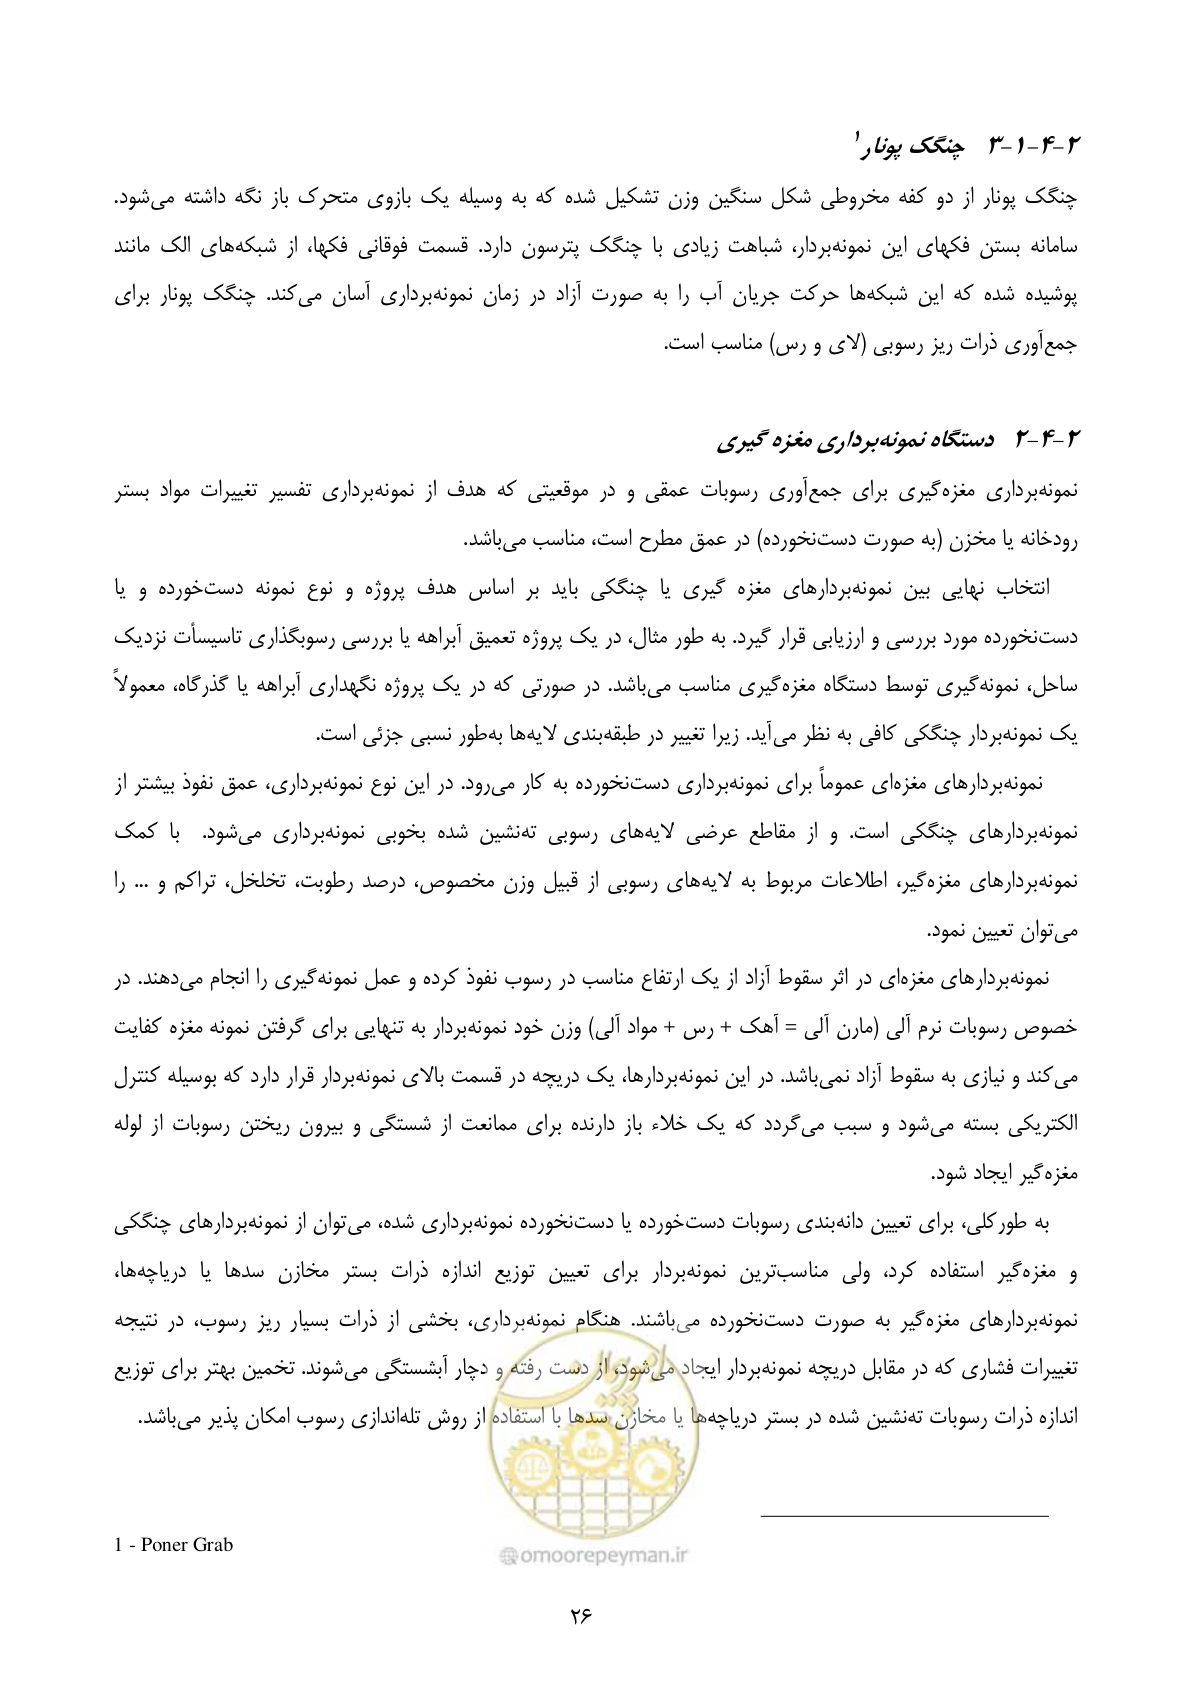 ۲-۴-۱-۳ چنگک پونار۱
چنگک پونار از دو کفه مخروطی شکل سنگین وزن تشکیل شده که به وسیله یک بازوی متحرک باز نگه داشته می‌شود.
سامانه بستن فکهای این نمونه‌بردار، شباهت زیادی با چنگک پترسون دارد. قسمت فوقانی فکها، از شبکه‌های الک مانند
پوشیده شده که این شبکه‌ها حرکت جریان آب را به صورت آزاد در زمان نمونه‌برداری آسان می‌کند. چنگک پونار برای
جمع‌آوری ذرات ریز رسوبی (لای و رس) مناسب است.
۲-۴-۲ دستگاه نمونه‌برداری مغزه گیری
نمونه‌برداری مغزه‌گیری برای جمع‌آوری رسوبات عمقی و در موقعیتی که هدف از نمونه‌برداری تفسیر تغییرات مواد بستر
رودخانه یا مخزن (به صورت دست‌نخورده) در عمق مطرح است، مناسب می‌باشد.
انتخاب نهایی بین نمونه‌بردارهای مغزه گیری یا چنگکی باید بر اساس هدف پروژه و نوع نمونه دست‌خورده و یا
دست‌نخورده مورد بررسی و ارزیابی قرار گیرد. به طور مثال، در یک پروژه تعمیق آبراهه یا بررسی رسوبگذاری تاسیسأت نزدیک
ساحل، نمونه‌گیری توسط دستگاه مغزه‌گیری مناسب می‌باشد. در صورتی که در یک پروژه نگهداری آبراهه یا گذرگاه، معمولاً
یک نمونه‌بردار چنگکی کافی به نظر می‌آید. زیرا تغییر در طبقه‌بندی لایه‌ها به‌طور نسبی جزئی است.
نمونه‌بردارهای مغزه‌ای عموماً برای نمونه‌برداری دست‌نخورده به کار می‌رود. در این نوع نمونه‌برداری، عمق نفوذ بیشتر از
نمونه‌بردارهای چنگکی است. و از مقاطع عرضی لایه‌های رسوبی ته‌نشین شده بخوبی نمونه‌برداری می‌شود. با کمک
نمونه‌بردارهای مغزه‌گیر، اطلاعات مربوط به لایه‌های رسوبی از قبیل وزن مخصوص، درصد رطوبت، تخلخل، تراکم و ... را
می‌توان تعیین نمود.
نمونه‌بردارهای مغزه‌ای در اثر سقوط آزاد از یک ارتفاع مناسب در رسوب نفوذ کرده و عمل نمونه‌گیری را انجام می‌دهند. در
خصوص رسوبات نرم آلی (مارن آلی = آهک + رس + مواد آلی) وزن خود نمونه‌بردار به تنهایی برای گرفتن نمونه مغزه کفایت
می‌کند و نیازی به سقوط آزاد نمی‌باشد. در این نمونه‌بردارها، یک دریچه در قسمت بالای نمونه‌بردار قرار دارد که بوسیله کنترل
الکتریکی بسته می‌شود و سبب می‌گردد که یک خلاء باز دارنده برای ممانعت از شستگی و بیرون ریختن رسوبات از لوله
مغزه‌گیر ایجاد شود.
به طورکلی، برای تعیین دانه‌بندی رسوبات دست‌خورده یا دست‌نخورده نمونه‌برداری شده، می‌توان از نمونه‌بردارهای چنگکی
و مغزه‌گیر استفاده کرد، ولی مناسب‌ترین نمونه‌بردار برای تعیین توزیع اندازه ذرات بستر مخازن سدها یا دریاچه‌ها،
نمونه‌بردارهای مغزه‌گیر به صورت دست‌نخورده می‌باشند. هنگام نمونه‌برداری، بخشی از ذرات بسیار ریز رسوب، در نتیجه
تغییرات فشاری که در مقابل دریچه نمونه‌بردار ایجاد می‌شود، از دست رفته و دچار آبشستگی می‌شوند. تخمین بهتر برای توزیع
اندازه ذرات رسوبات ته‌نشین شده در بستر دریاچه‌ها یا مخازن سدها با استفاده از روش تله‌اندازی رسوب امکان پذیر می‌باشد.
1 - Poner Grab
@omoorepeyman.ir
۲۶